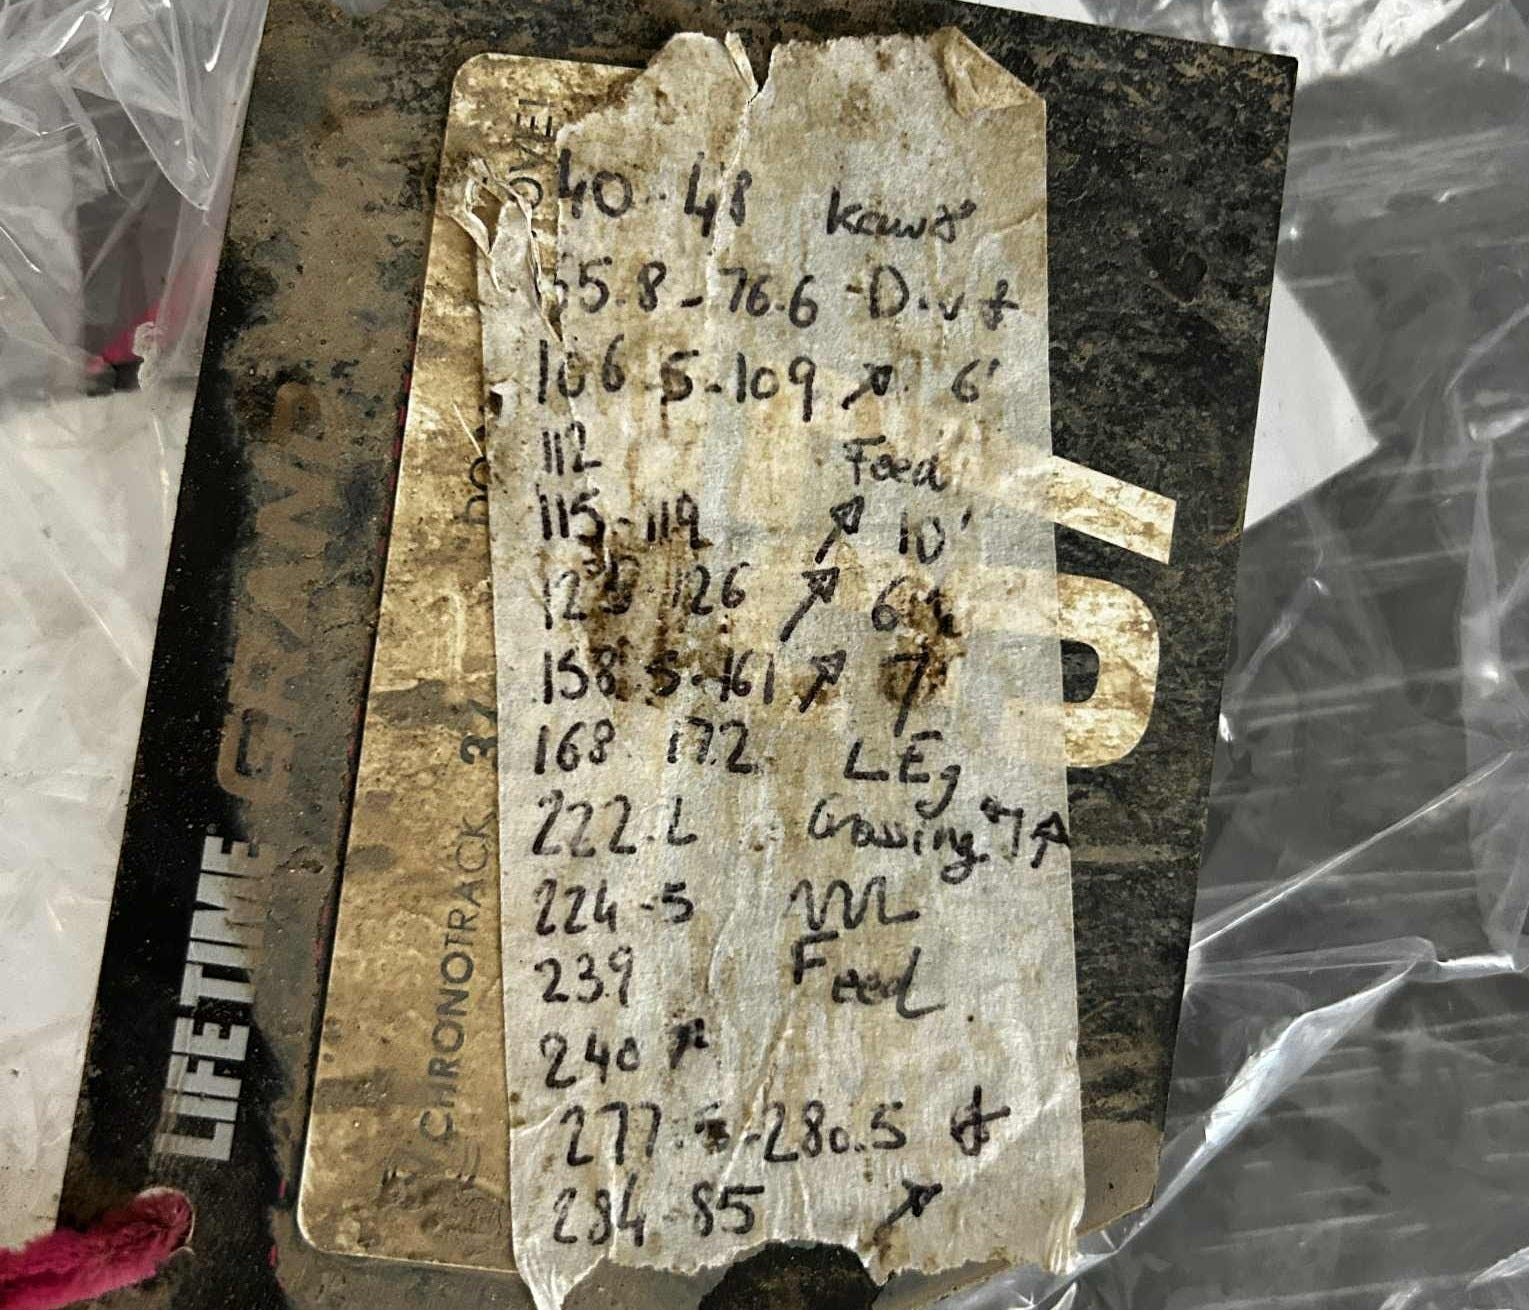 40 - 48
55.8 - 76.6 - Dirt
106.5 - 109 ↗ 6'
112 Feed
115 - 119 ↗ 10'
126 ↗ 6
158.5 - 161 ↗ 7
168 172 LEg
222.2 Crossing ↗
224-5
239 Feed
240 ↗
277.5 - 280.5
284 - 85 ↗
LIFETIME
GRAND
CHRONOTRACK